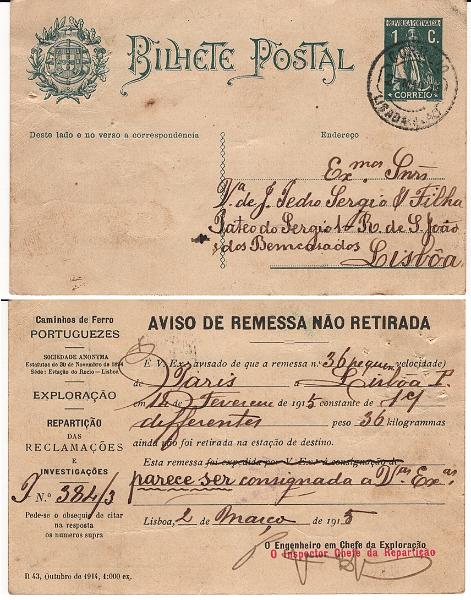 REPUBLICA PORTUGUESA
1 C.
CORREIO
BILHETE POSTAL
Deste lado e no verso a correspondencia
Endereço
Ex.mos Snrs
V.a de J. Pedro Sergio & Filha
Pateo do Sergio 1- R. de S. João
dos Bemcasados
Lisbôa
Caminhos de Ferro
PORTUGUEZES
SOCIEDADE ANONYMA
Estatutos de 30 de Novembro de 1894
Séde: Estação do Rocio - Lisboa
EXPLORAÇÃO
REPARTIÇÃO
DAS
RECLAMAÇÕES
E
INVESTIGAÇÕES
N.º 384/3
Pede-se o obsequio de citar
na resposta
os numeros supra
AVISO DE REMESSA NÃO RETIRADA
É V. Ex.ª avisado de que a remessa n.º 36 pequena velocidade)
de Paris a Lisboa P.
em 12 de Fevereiro de 1915 constante de
differentes peso 36 kilogrammas
ainda não foi retirada na estação de destino.
Esta remessa foi expedida por V. Ex.ª á consignação de
parece ser consignada a V.as Ex.as
Lisboa, 2 de Março de 1915
O Engenheiro em Chefe da Exploração
O Inspector Chefe da Repartição
B 43, Outubro de 1914, 4:000 ex.